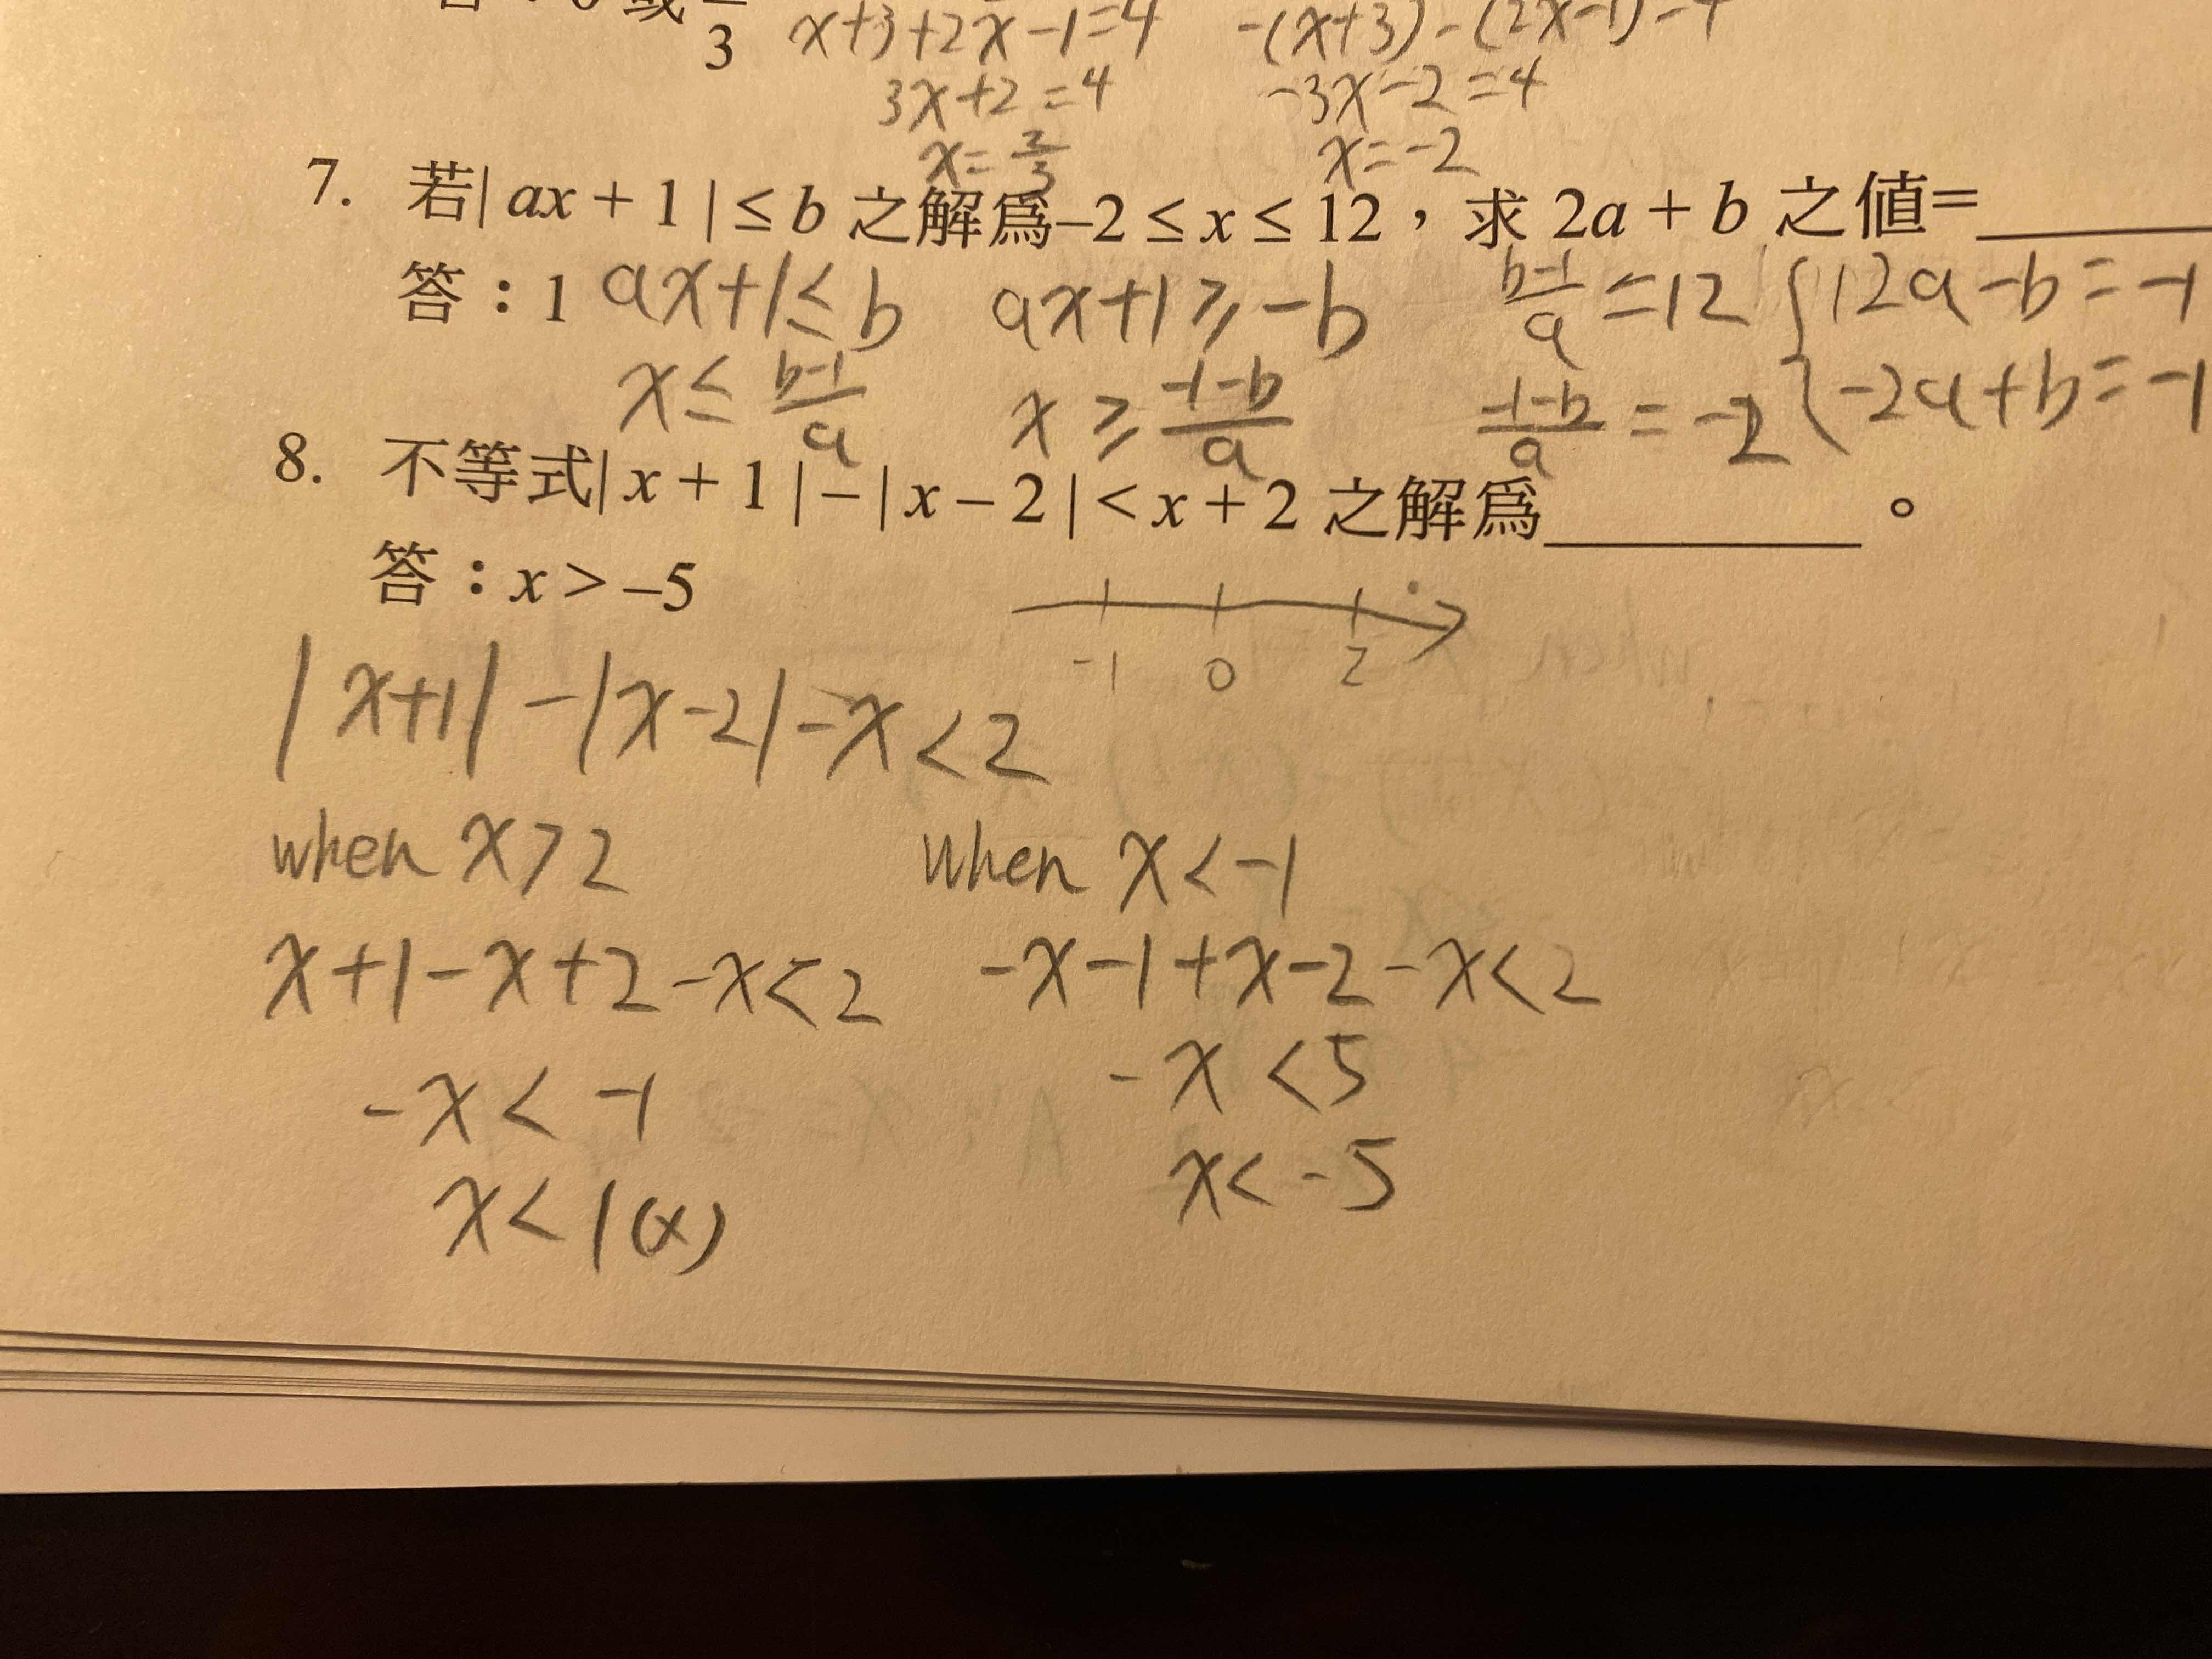 或 3 x+3+2x-1=4 -(x+3)-(2x-1)=4
3x+2=4 -3x-2=4
x=2/3 x=-2
7. 若| ax + 1 | ≤ b 之解爲–2 ≤ x ≤ 12，求 2a + b 之值=
答：1 ax+1≤b ax+1≥-b (b-1)/a=12 {12a-b=-1
x≤(b-1)/a x≥(-1-b)/a (-1-b)/a=-2 -2a+b=-1
8. 不等式| x + 1 | – | x – 2 | < x + 2 之解爲 。
答：x > –5
-1 0 2
|x+1|-|x-2|-x<2
when x>2 when x<-1
x+1-x+2-x<2 -x-1+x-2-x<2
-x<-1 -x<5
x<1(x) x<-5